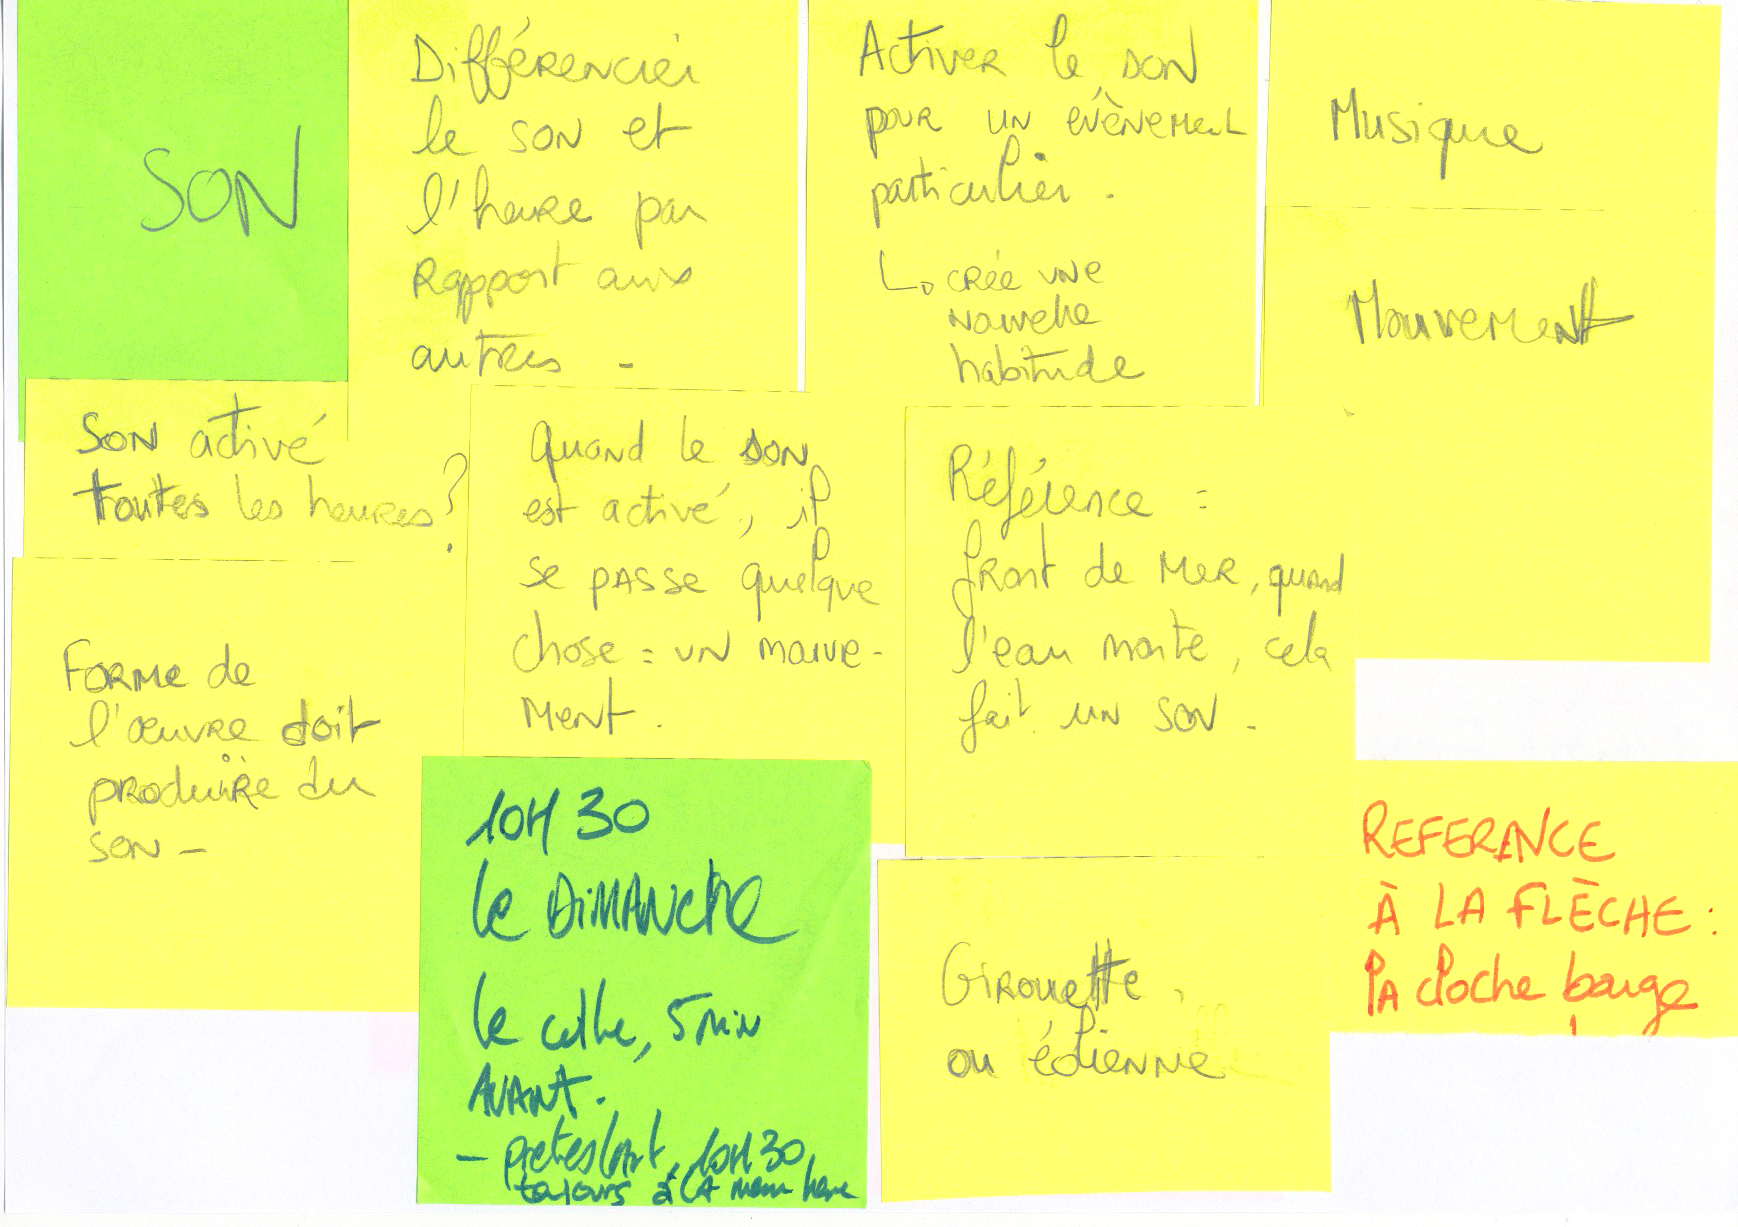 SON
Différencier
le SON et
l'heure par
Rapport aux
autres -
Activer le SON
pour un évènement
particulier.
↳ crée une
nouvelle
habitude
Musique
Mouvement
SON activé
toutes les heures ?
Quand le SON
est activé, il
se passe quelque
chose = un mouve-
ment.
Référence :
front de mer, quand
l'eau monte, cela
fait un son -
Forme de
l'œuvre doit
produire du
son -
10H30
le DIMANCHE
le culte, 5 min
AVANT.
- protestant, 10H30
toujours à la même heure
Girouette
ou éolienne
REFERENCE
À LA FLÈCHE :
la cloche bouge